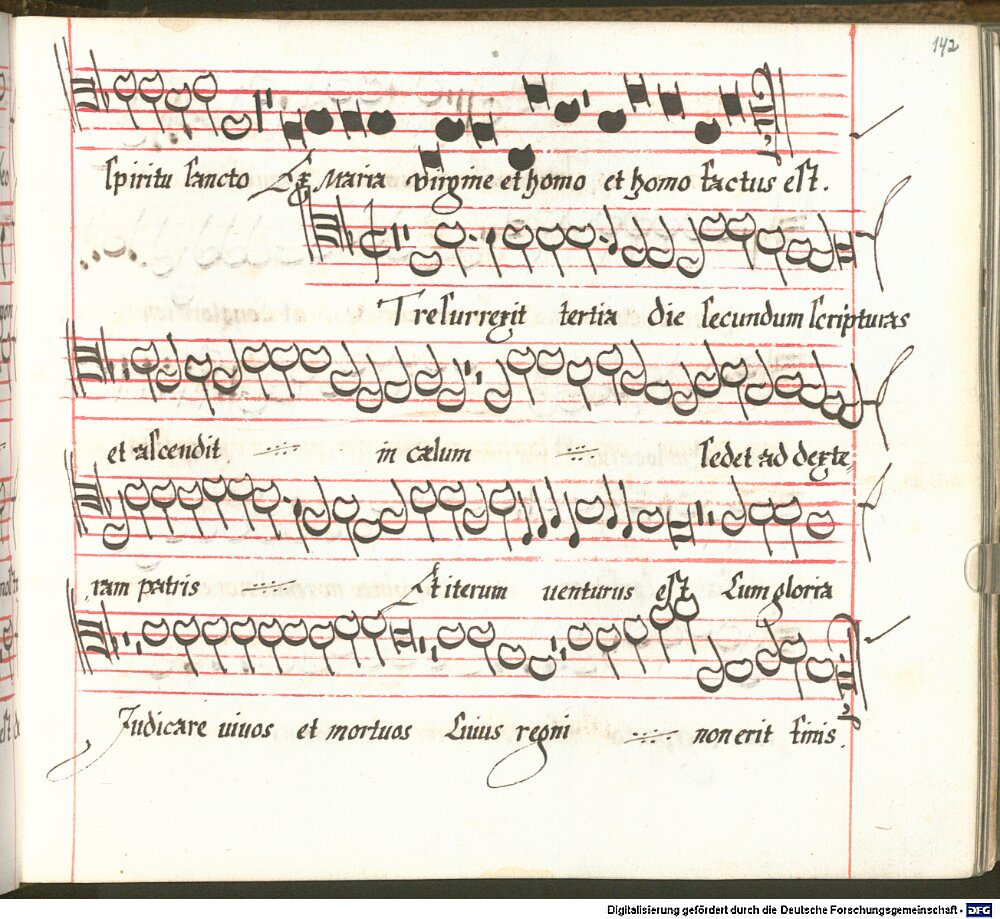 142
spiritu sancto Ex Maria virgine et homo et homo factus est.
T resurrexit tertia die secundum scripturas
et ascendit in cælum sedet ad dexte
ram patris Et iterum venturus est Cum gloria
Judicare vivos et mortuos Cuius regni non erit finis.
Digitalisierung gefördert durch die Deutsche Forschungsgemeinschaft - DFG